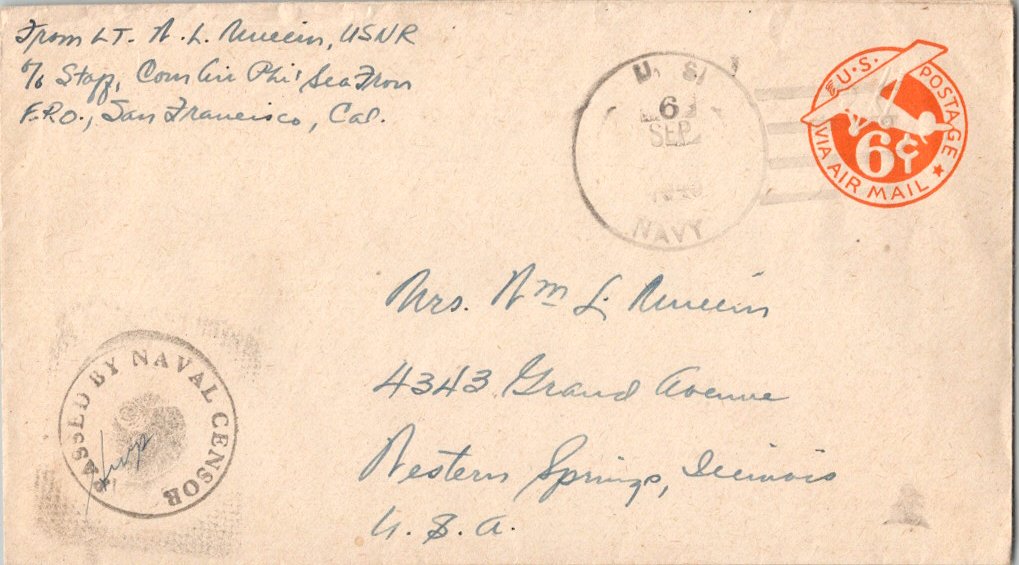 From LT. W. L. USNR
c/o Staff, Com Air Phil Sea Fron
F.P.O., San Francisco, Cal.
U. S.
6
SEP
NAVY
U.S. POSTAGE
6¢
VIA AIR MAIL
Mrs. Wm L.
4343 Grand Avenue
Western Springs, Illinois
U. S. A.
PASSED BY NAVAL CENSOR